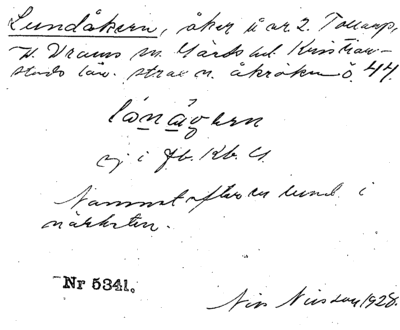 Lundåkern, åker å nr 2. Tollarp,
V. Vrams sn. Gärds hd. Kristian-
stads län. strax n. åkröken ö. 44.
lónågern
ej i Jb. Kb. U.
Namnet efter en lund i
närheten.
Nr 5341.
Nils Nilsson 1928.